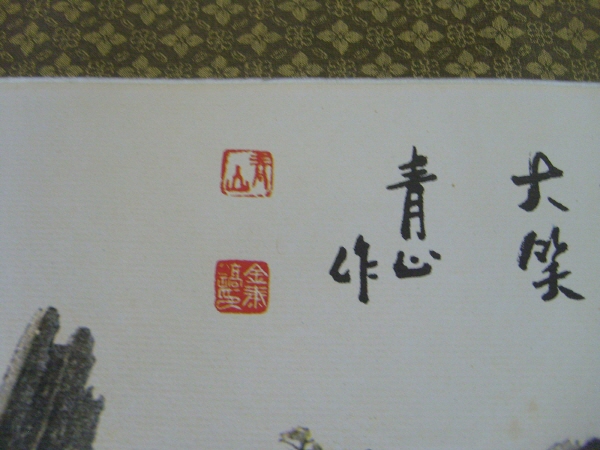 大笑
青山
作
青山